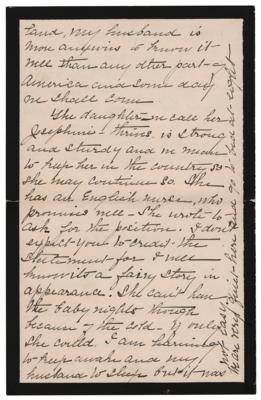 land, my husband is
more anxious to know it
well than any other part of
America and some day
we shall come.
The daughter we call her
Josephine thrives is strong
and sturdy and we mean
to keep her in the country so
she may continue so. She
has an English nurse, who
promises well - She wrote to
ask for the position. I don't
expect you to credit the
statement for I well
know its a fairy story in
appearance. She can't have
the baby nights though
because of the cold - If only
she could. I am learning
to keep awake and my
husband to sleep but it was
not easy.
We are very quiet here and go to bed at eight